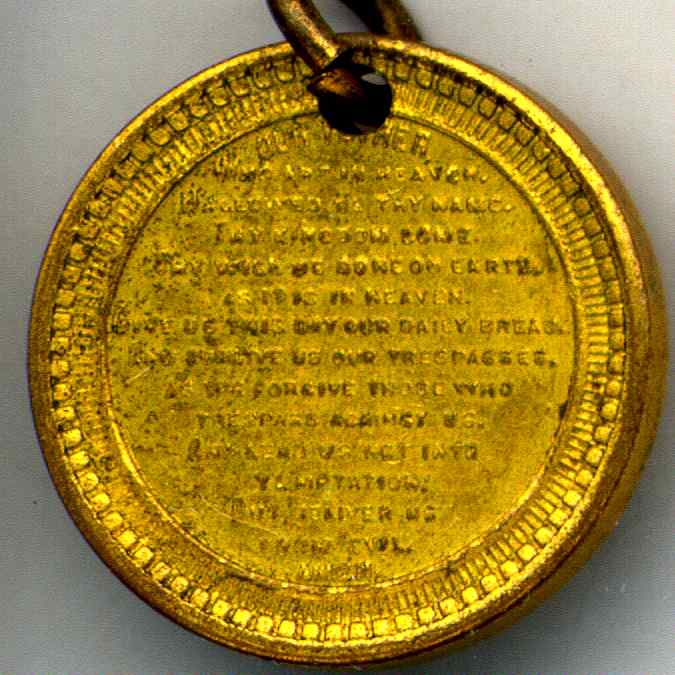 OUR FATHER
WHO ART IN HEAVEN,
HALLOWED BE THY NAME.
THY KINGDOM COME.
THY WILL BE DONE ON EARTH,
AS IT IS IN HEAVEN.
GIVE US THIS DAY OUR DAILY BREAD.
AND FORGIVE US OUR TRESPASSES,
AS WE FORGIVE THOSE WHO
TRESPASS AGAINST US.
AND LEAD US NOT INTO
TEMPTATION;
BUT DELIVER US
FROM EVIL.
AMEN.